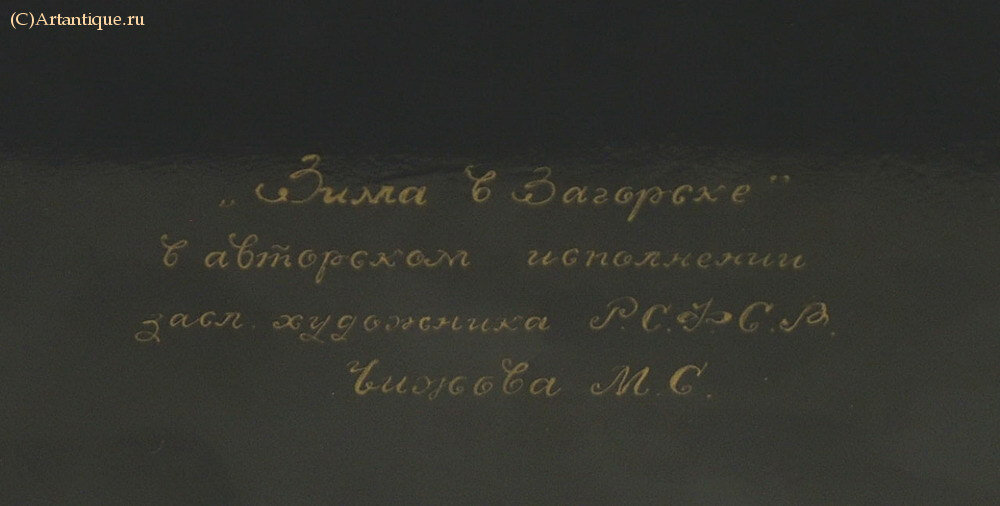 (C)Artantique.ru
„Зима в Загорске”
в авторском исполнении
засл. художника Р.С.Ф.С.Р.
Чижова М.С.